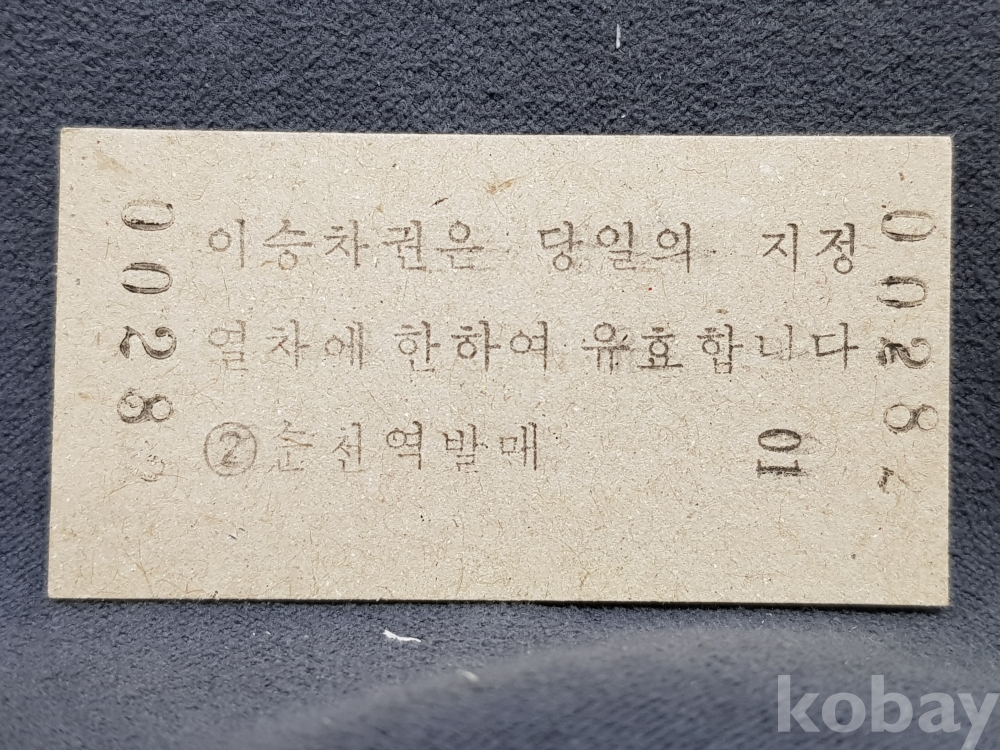 이승차권은 당일의 지정
열차에 한하여 유효합니다
② 순천역발매
01
0028
0028
kobay